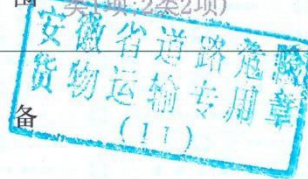 类1项,2类2项)
安徽省道路危险
货物运输专用章
备
(11)